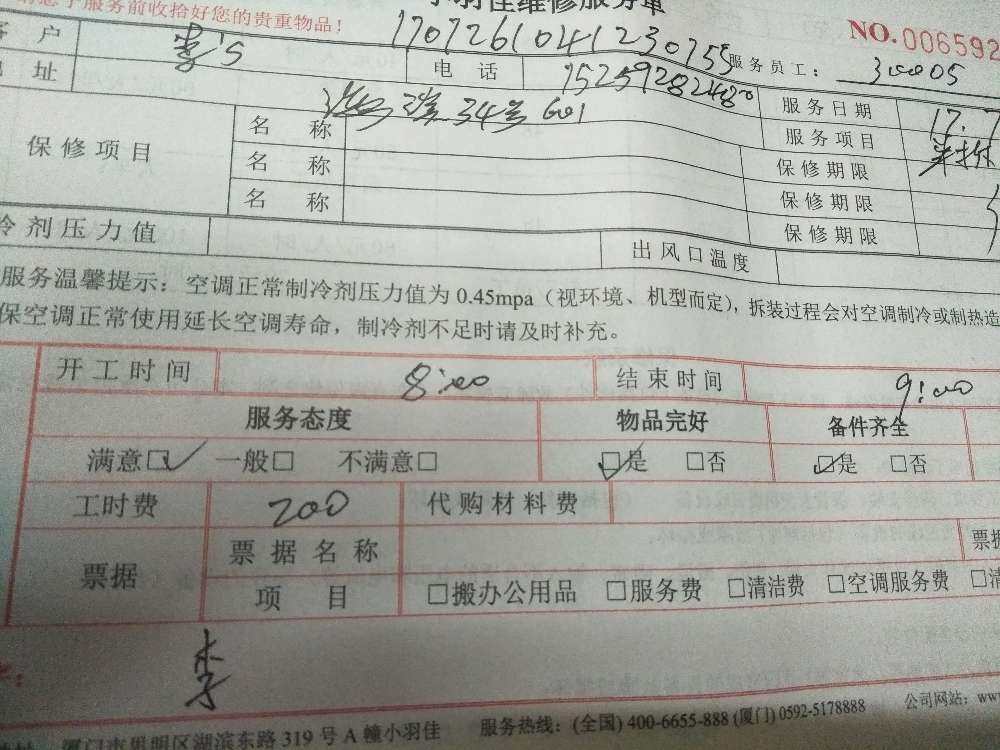 服务前收拾好您的贵重物品!
佳维修服务单
NO.006592
客户 李's 1707261041230755 服务员工: 300005
地址 电话 15259282480 服务日期 17.7
34号601 服务项目
保修项目 名称 保修期限
名称 保修期限
名称 保修期限
冷剂压力值 出风口温度
服务温馨提示:空调正常制冷剂压力值为0.45mpa(视环境、机型而定),拆装过程会对空调制冷或制热造
保空调正常使用延长空调寿命,制冷剂不足时请及时补充。
开工时间 8:00 结束时间 9:00
服务态度 物品完好 备件齐全
满意☑ 一般□ 不满意□ ☑是 □否 ☑是 □否
工时费 200 代购材料费
票据 票据名称 票据
项目 □搬办公用品 □服务费 □清洁费 □空调服务费 □清
李
厦门市思明区湖滨东路319号A幢小羽佳 服务热线:(全国)400-6655-888(厦门)0592-5178888 公司网站:www